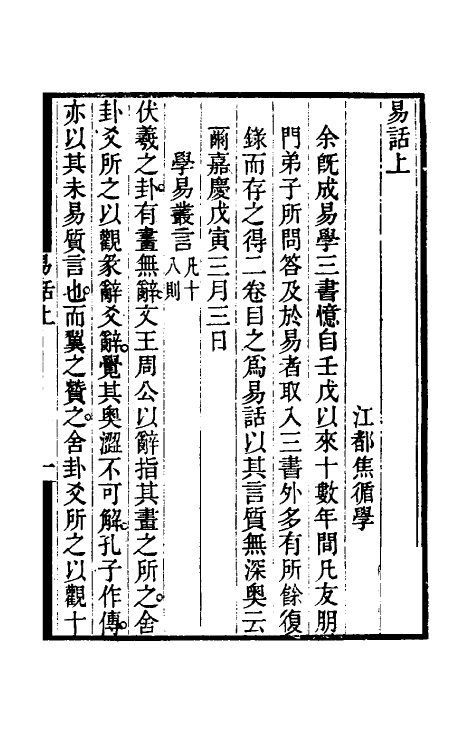 易話上
江都焦循學
余既成易學三書憶自壬戊以來十數年間凡友朋
門弟子所問答及於易者取入三書外多有所餘復
錄而存之得二卷目之爲易話以其言質無深奧云
爾嘉慶戊寅三月三日
學易叢言凡十八則
伏羲之卦有畫無辭文王周公以辭指其畫之所之舍
卦爻所之以觀彖辭爻辭覺其奧澀不可解孔子作傳
亦以其未易質言也而翼之贊之舍卦爻所之以觀十
易話上
一